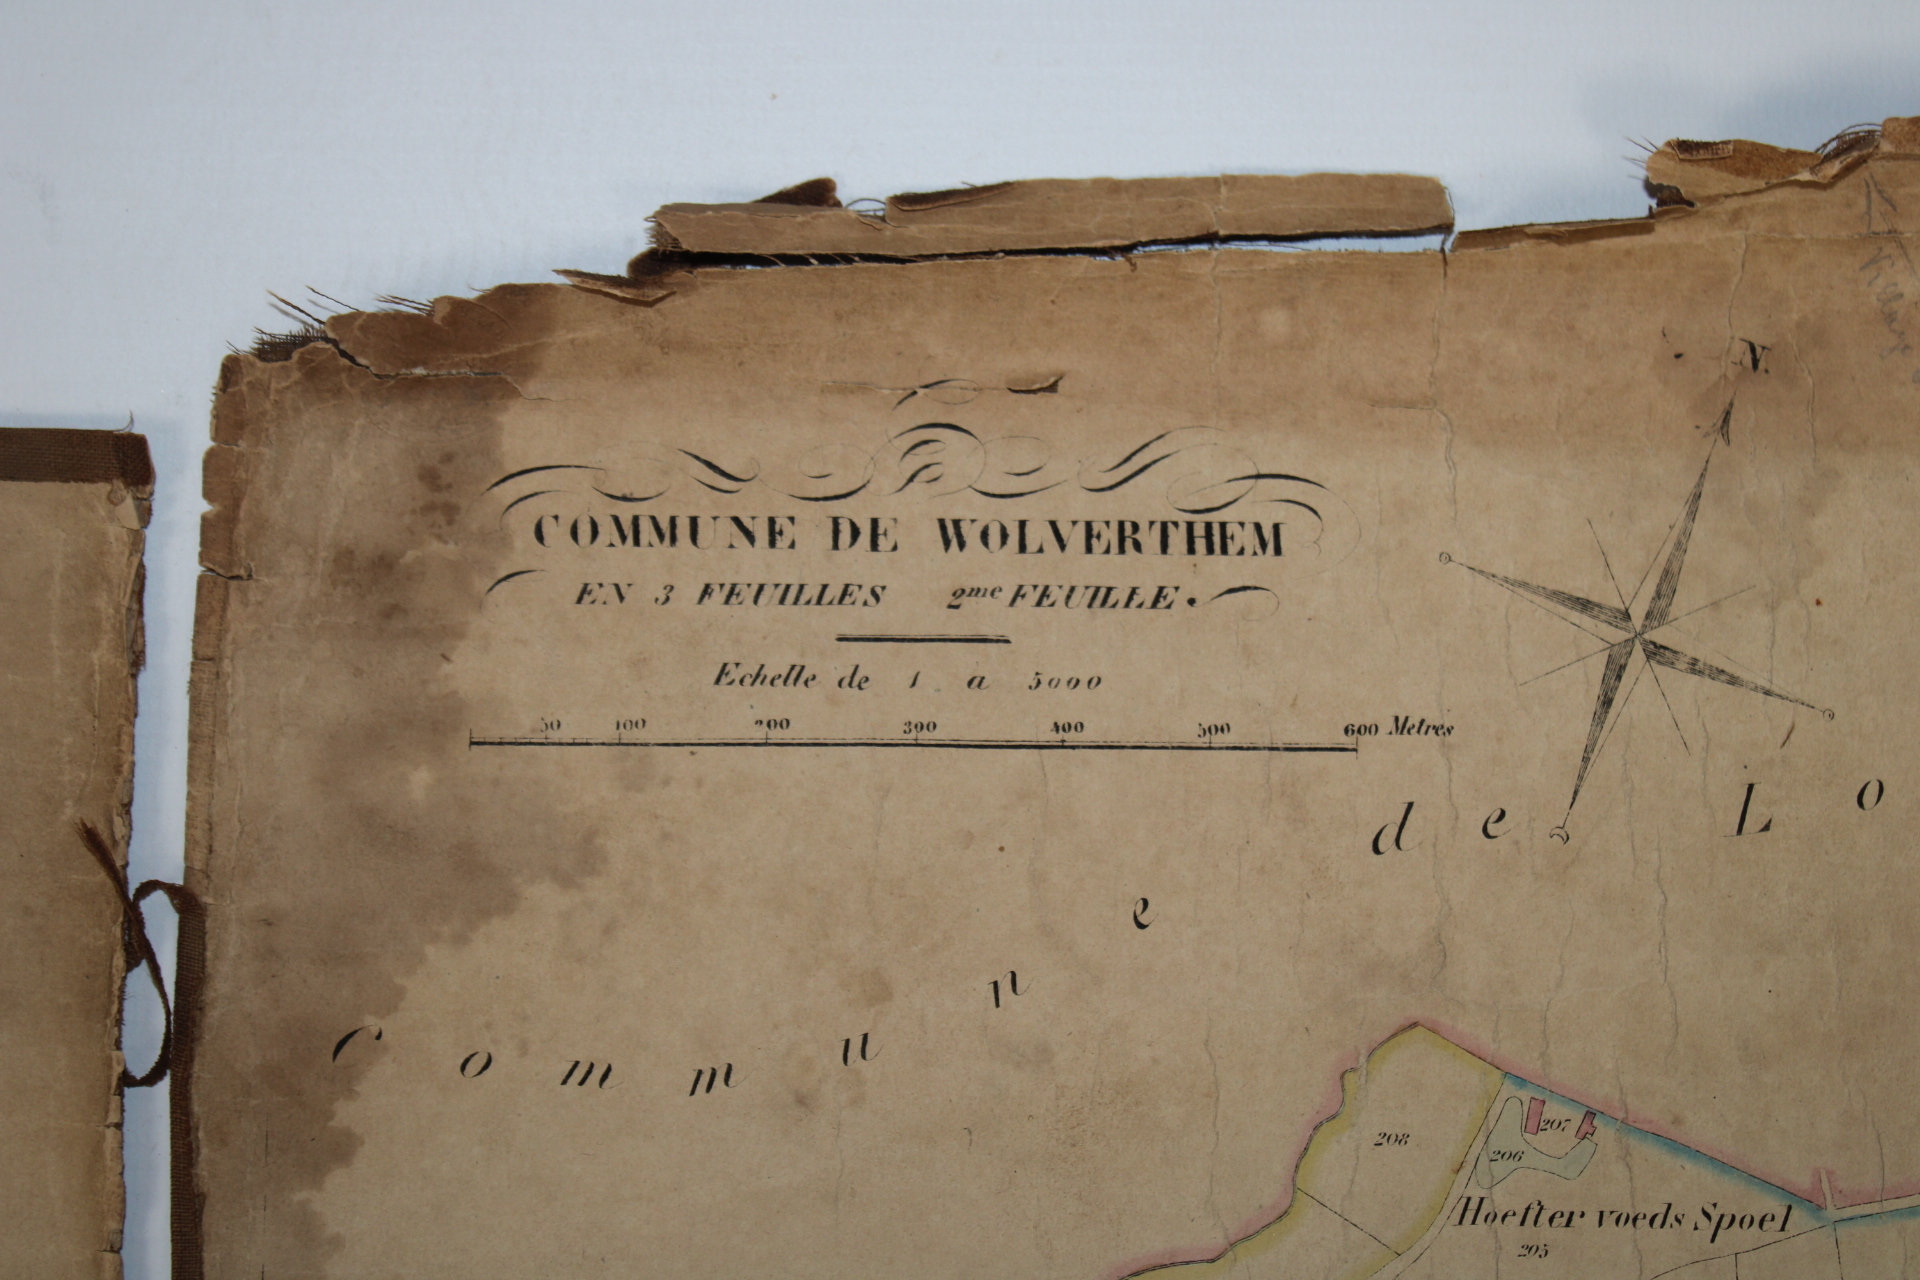 N.
COMMUNE DE WOLVERTHEM
EN 3 FEUILLES 2me FEUILLE.
Echelle de 1 a 5000
50 100 200 300 400 500 600 Metres
Commune de Lo
208
207
206
Hoefter voeds Spoel
205